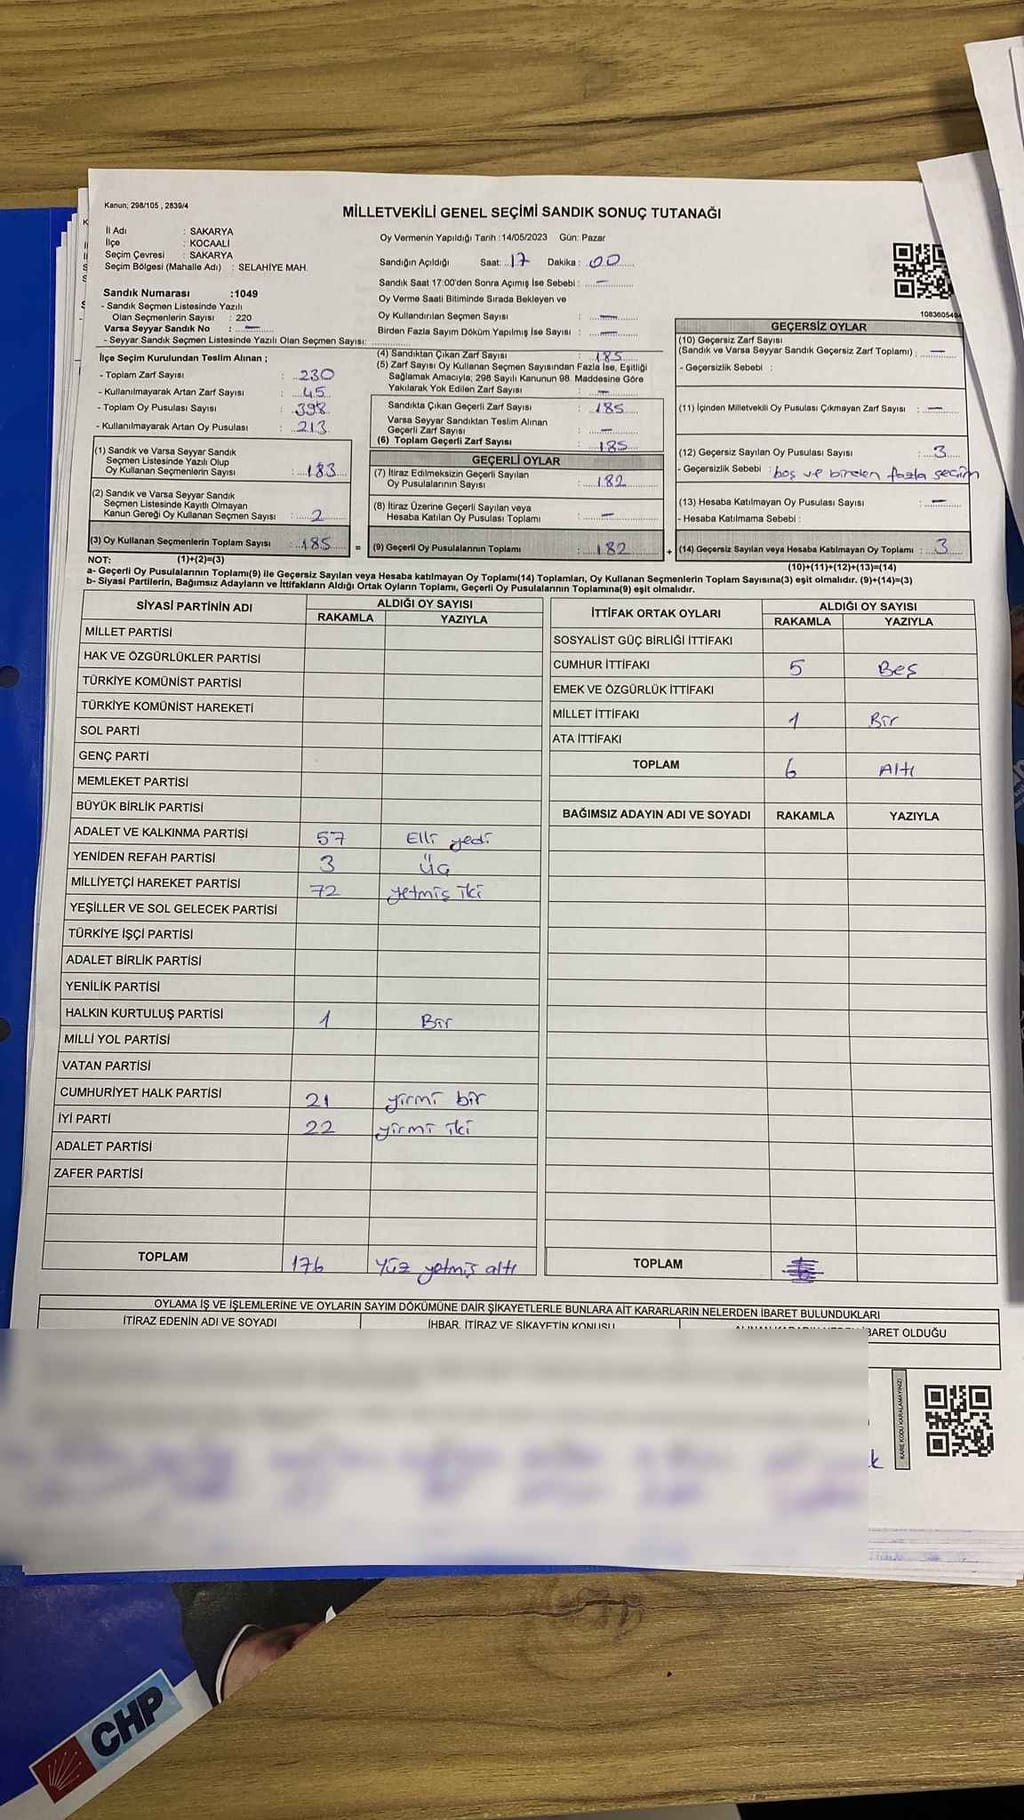 Kanun; 298/105 , 2839/4
MİLLETVEKİLİ GENEL SEÇİMİ SANDIK SONUÇ TUTANAĞI
İl Adı : SAKARYA
İlçe : KOCAALİ
Seçim Çevresi : SAKARYA
Seçim Bölgesi (Mahalle Adı) : SELAHİYE MAH.
Sandık Numarası :1049
- Sandık Seçmen Listesinde Yazılı
Olan Seçmenlerin Sayısı : 220
Varsa Seyyar Sandık No : —
- Seyyar Sandık Seçmen Listesinde Yazılı Olan Seçmen Sayısı:
Oy Vermenin Yapıldığı Tarih :14/05/2023 Gün: Pazar
Sandığın Açıldığı Saat: 17 Dakika : 00
Sandık Saat 17:00'den Sonra Açımış İse Sebebi : —
Oy Verme Saati Bitiminde Sırada Bekleyen ve
Oy Kullandırılan Seçmen Sayısı : —
Birden Fazla Sayım Döküm Yapılmış İse Sayısı : —
İlçe Seçim Kurulundan Teslim Alınan ;
- Toplam Zarf Sayısı : 230
- Kullanılmayarak Artan Zarf Sayısı : 45
- Toplam Oy Pusulası Sayısı : 398
- Kullanılmayarak Artan Oy Pusulası : 213
(1) Sandık ve Varsa Seyyar Sandık
Seçmen Listesinde Yazılı Olup
Oy Kullanan Seçmenlerin Sayısı : 183
(2) Sandık ve Varsa Seyyar Sandık
Seçmen Listesinde Kayıtlı Olmayan
Kanun Gereği Oy Kullanan Seçmen Sayısı : 2
(3) Oy Kullanan Seçmenlerin Toplam Sayısı : 185 =
(4) Sandıktan Çıkan Zarf Sayısı : 185
(5) Zarf Sayısı Oy Kullanan Seçmen Sayısından Fazla İse, Eşitliği
Sağlamak Amacıyla; 298 Sayılı Kanunun 98. Maddesine Göre
Yakılarak Yok Edilen Zarf Sayısı : —
Sandıkta Çıkan Geçerli Zarf Sayısı : 185
Varsa Seyyar Sandıktan Teslim Alınan
Geçerli Zarf Sayısı : —
(6) Toplam Geçerli Zarf Sayısı : 185
GEÇERLİ OYLAR
(7) İtiraz Edilmeksizin Geçerli Sayılan
Oy Pusulalarının Sayısı : 182
(8) İtiraz Üzerine Geçerli Sayılan veya
Hesaba Katılan Oy Pusulası Toplamı : —
(9) Geçerli Oy Pusulalarının Toplamı : 182 +
1083605494
GEÇERSİZ OYLAR
(10) Geçersiz Zarf Sayısı
(Sandık ve Varsa Seyyar Sandık Geçersiz Zarf Toplamı) : —
- Geçersizlik Sebebi :
(11) İçinden Milletvekili Oy Pusulası Çıkmayan Zarf Sayısı : —
(12) Geçersiz Sayılan Oy Pusulası Sayısı : 3
- Geçersizlik Sebebi : boş ve birden fazla seçim
(13) Hesaba Katılmayan Oy Pusulası Sayısı : —
- Hesaba Katılmama Sebebi :
(14) Geçersiz Sayılan veya Hesaba Katılmayan Oy Toplamı : 3
NOT: (1)+(2)=(3) (10)+(11)+(12)+(13)=(14)
a- Geçerli Oy Pusulalarının Toplamı(9) ile Geçersiz Sayılan veya Hesaba katılmayan Oy Toplamı(14) Toplamları, Oy Kullanan Seçmenlerin Toplam Sayısına(3) eşit olmalıdır. (9)+(14)=(3)
b- Siyasi Partilerin, Bağımsız Adayların ve İttifakların Aldığı Ortak Oyların Toplamı, Geçerli Oy Pusulalarının Toplamına(9) eşit olmalıdır.
SİYASİ PARTİNİN ADI ALDIĞI OY SAYISI
RAKAMLA YAZIYLA
MİLLET PARTİSİ
HAK VE ÖZGÜRLÜKLER PARTİSİ
TÜRKİYE KOMÜNİST PARTİSİ
TÜRKİYE KOMÜNİST HAREKETİ
SOL PARTİ
GENÇ PARTİ
MEMLEKET PARTİSİ
BÜYÜK BİRLİK PARTİSİ
ADALET VE KALKINMA PARTİSİ 57 Elli yedi
YENİDEN REFAH PARTİSİ 3 Üç
MİLLİYETÇİ HAREKET PARTİSİ 72 yetmiş iki
YEŞİLLER VE SOL GELECEK PARTİSİ
TÜRKİYE İŞÇİ PARTİSİ
ADALET BİRLİK PARTİSİ
YENİLİK PARTİSİ
HALKIN KURTULUŞ PARTİSİ 1 Bir
MİLLİ YOL PARTİSİ
VATAN PARTİSİ
CUMHURİYET HALK PARTİSİ 21 yirmi bir
İYİ PARTİ 22 yirmi iki
ADALET PARTİSİ
ZAFER PARTİSİ
TOPLAM 176 Yüz yetmiş altı
İTTİFAK ORTAK OYLARI ALDIĞI OY SAYISI
RAKAMLA YAZIYLA
SOSYALİST GÜÇ BİRLİĞİ İTTİFAKI
CUMHUR İTTİFAKI 5 Beş
EMEK VE ÖZGÜRLÜK İTTİFAKI
MİLLET İTTİFAKI 1 Bir
ATA İTTİFAKI
TOPLAM 6 Altı
BAĞIMSIZ ADAYIN ADI VE SOYADI RAKAMLA YAZIYLA
TOPLAM
OYLAMA İŞ VE İŞLEMLERİNE VE OYLARIN SAYIM DÖKÜMÜNE DAİR ŞİKAYETLERLE BUNLARA AİT KARARLARIN NELERDEN İBARET BULUNDUKLARI
İTİRAZ EDENİN ADI VE SOYADI İHBAR, İTİRAZ VE ŞİKAYETİN KONUSU ALINAN KARARIN NEDEN İBARET OLDUĞU
KARE KODU KARALAMAYINIZ!
CHP